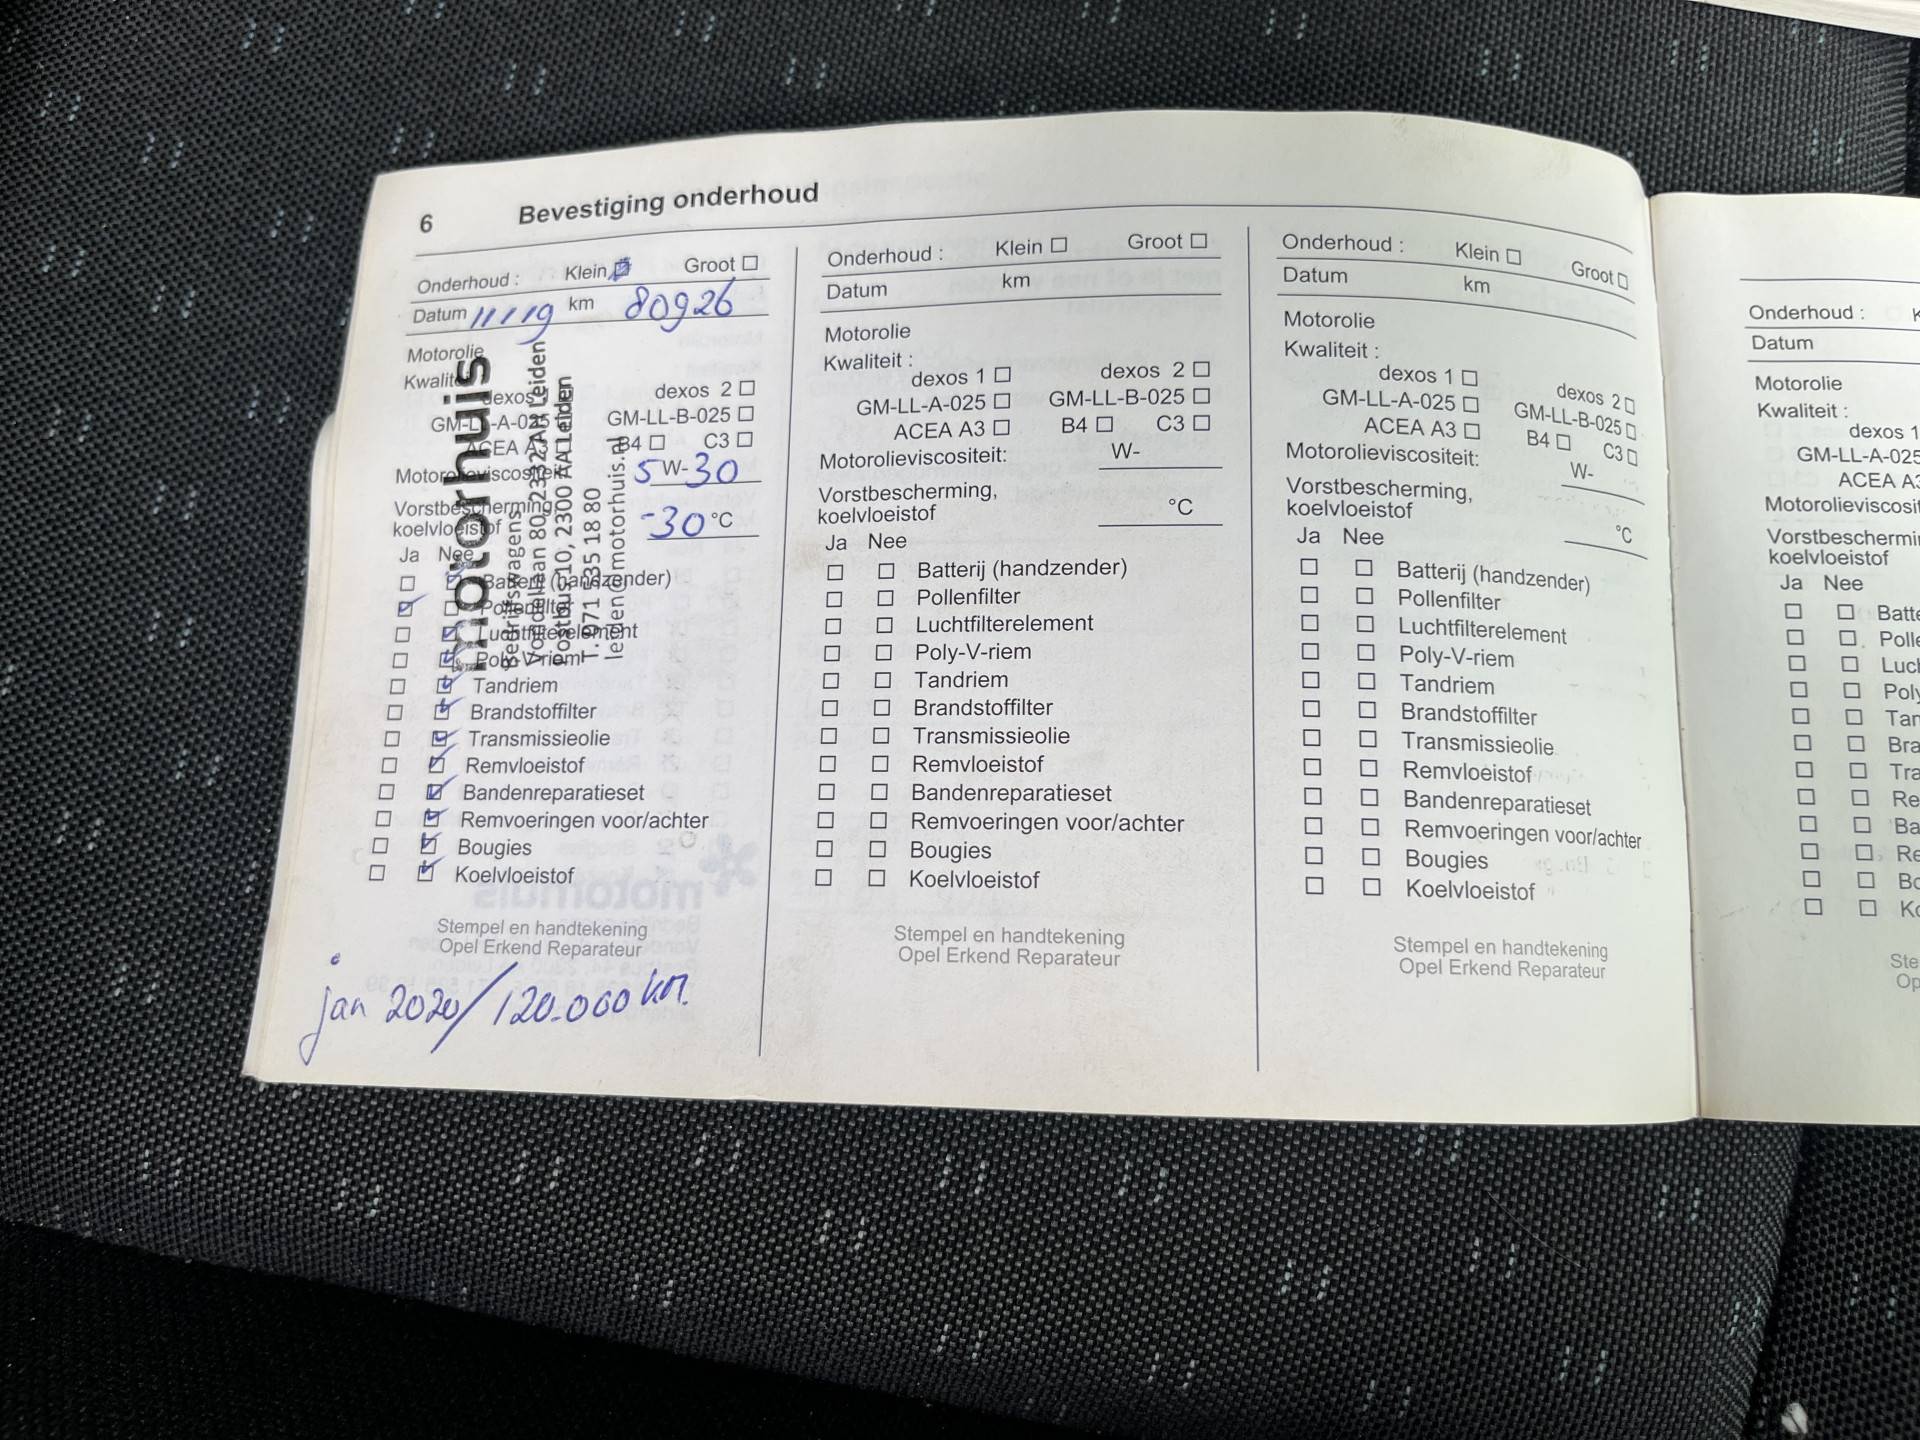 6 Bevestiging onderhoud
Onderhoud : Klein Groot
Datum 11/1/19 km 80926
Motorolie
Kwaliteit :
dexos 1 dexos 2
GM-LL-A-025 GM-LL-B-025
ACEA A3 B4 C3
Motorolieviscositeit: 5 W- 30
Vorstbescherming,
koelvloeistof -30 °C
Ja Nee
Batterij (handzender)
Pollenfilter
Luchtfilterelement
Poly-V-riem
Tandriem
Brandstoffilter
Transmissieolie
Remvloeistof
Bandenreparatieset
Remvoeringen voor/achter
Bougies
Koelvloeistof
Stempel en handtekening
Opel Erkend Reparateur
jan 2020/120.000 km.
motorhuis
Bedrijfswagens
Vondellaan 80, 2332 AH Leiden
Postbus 10, 2300 AA Leiden
T. 071 535 18 80
leiden@motorhuis.nl
Onderhoud : Klein Groot
Datum km
Motorolie
Kwaliteit :
dexos 1 dexos 2
GM-LL-A-025 GM-LL-B-025
ACEA A3 B4 C3
Motorolieviscositeit: W-
Vorstbescherming,
koelvloeistof °C
Ja Nee
Batterij (handzender)
Pollenfilter
Luchtfilterelement
Poly-V-riem
Tandriem
Brandstoffilter
Transmissieolie
Remvloeistof
Bandenreparatieset
Remvoeringen voor/achter
Bougies
Koelvloeistof
Stempel en handtekening
Opel Erkend Reparateur
Onderhoud : Klein Groot
Datum km
Motorolie
Kwaliteit :
dexos 1 dexos 2
GM-LL-A-025 GM-LL-B-025
ACEA A3 B4 C3
Motorolieviscositeit: W-
Vorstbescherming,
koelvloeistof °C
Ja Nee
Batterij (handzender)
Pollenfilter
Luchtfilterelement
Poly-V-riem
Tandriem
Brandstoffilter
Transmissieolie
Remvloeistof
Bandenreparatieset
Remvoeringen voor/achter
Bougies
Koelvloeistof
Stempel en handtekening
Opel Erkend Reparateur
Onderhoud : K
Datum
Motorolie
Kwaliteit :
dexos 1
GM-LL-A-025
ACEA A3
Motorolieviscosit
Vorstbeschermi
koelvloeistof
Ja Nee
Batte
Polle
Luch
Poly
Tan
Bra
Tra
Re
Ba
Re
Bo
Ko
Ste
Op